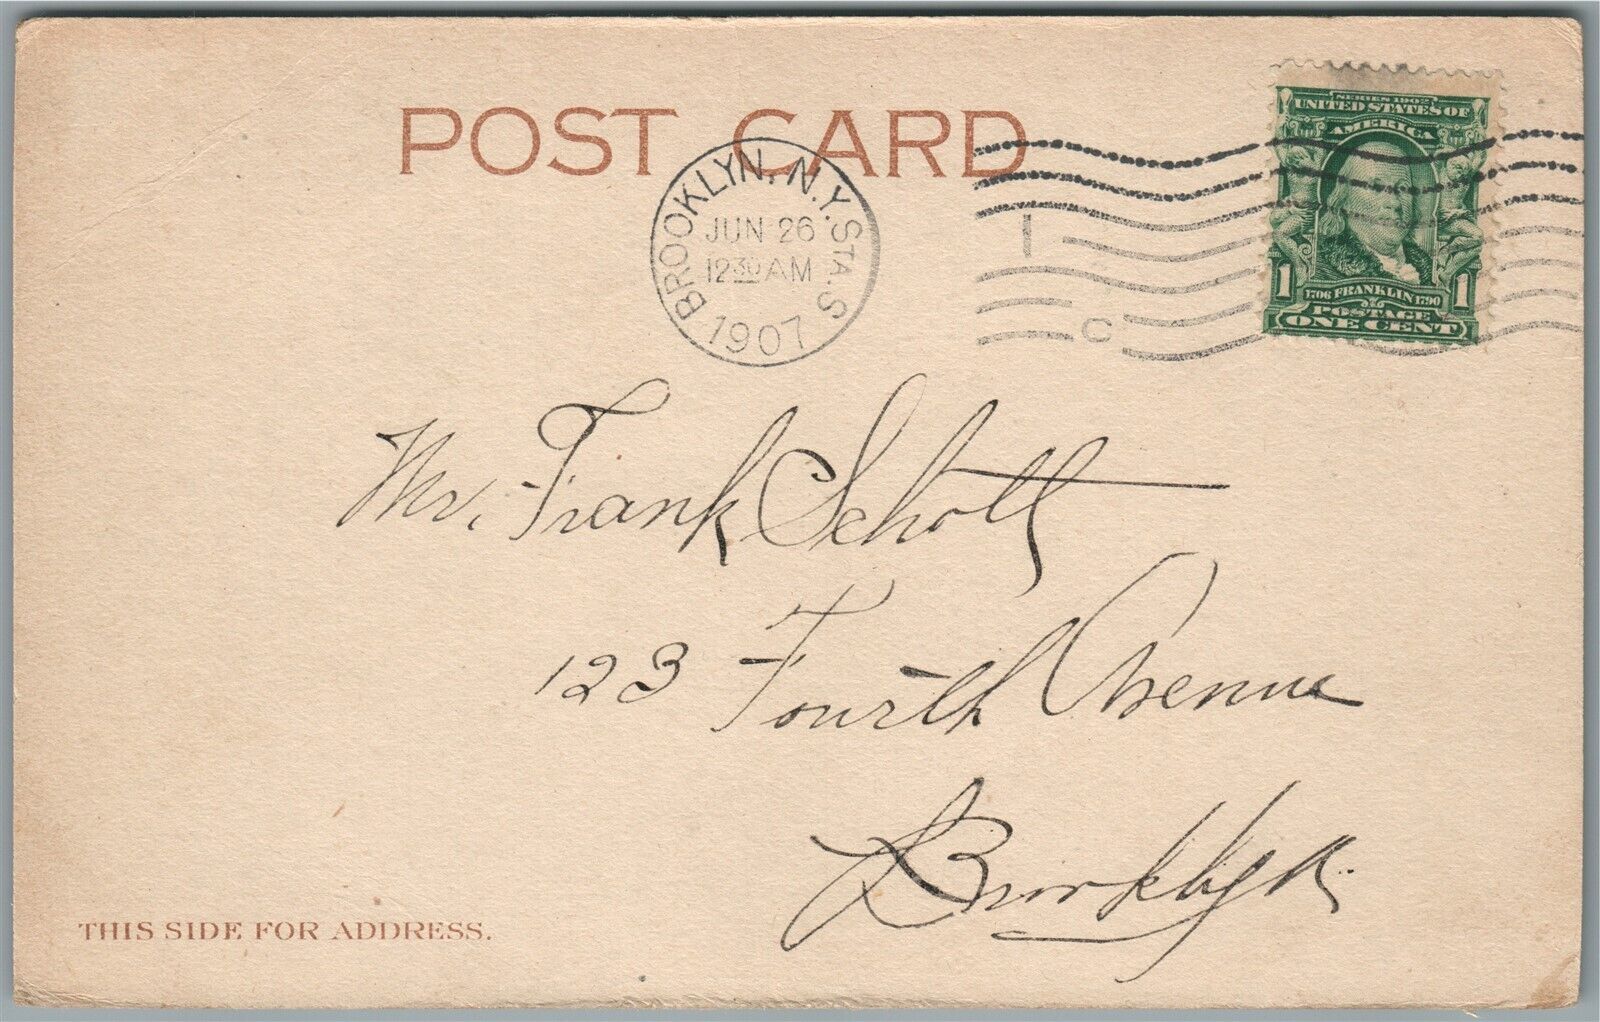 POST CARD
BROOKLYN, N.Y. STA. S
JUN 26
12 30 AM
1907
1
C
SERIES 1902
UNITED STATES OF
AMERICA
1 1
1706 FRANKLIN 1790
POSTAGE
ONE CENT
Mr. Frank Schott
123 Fourth Avenue
Brooklyn.
THIS SIDE FOR ADDRESS.